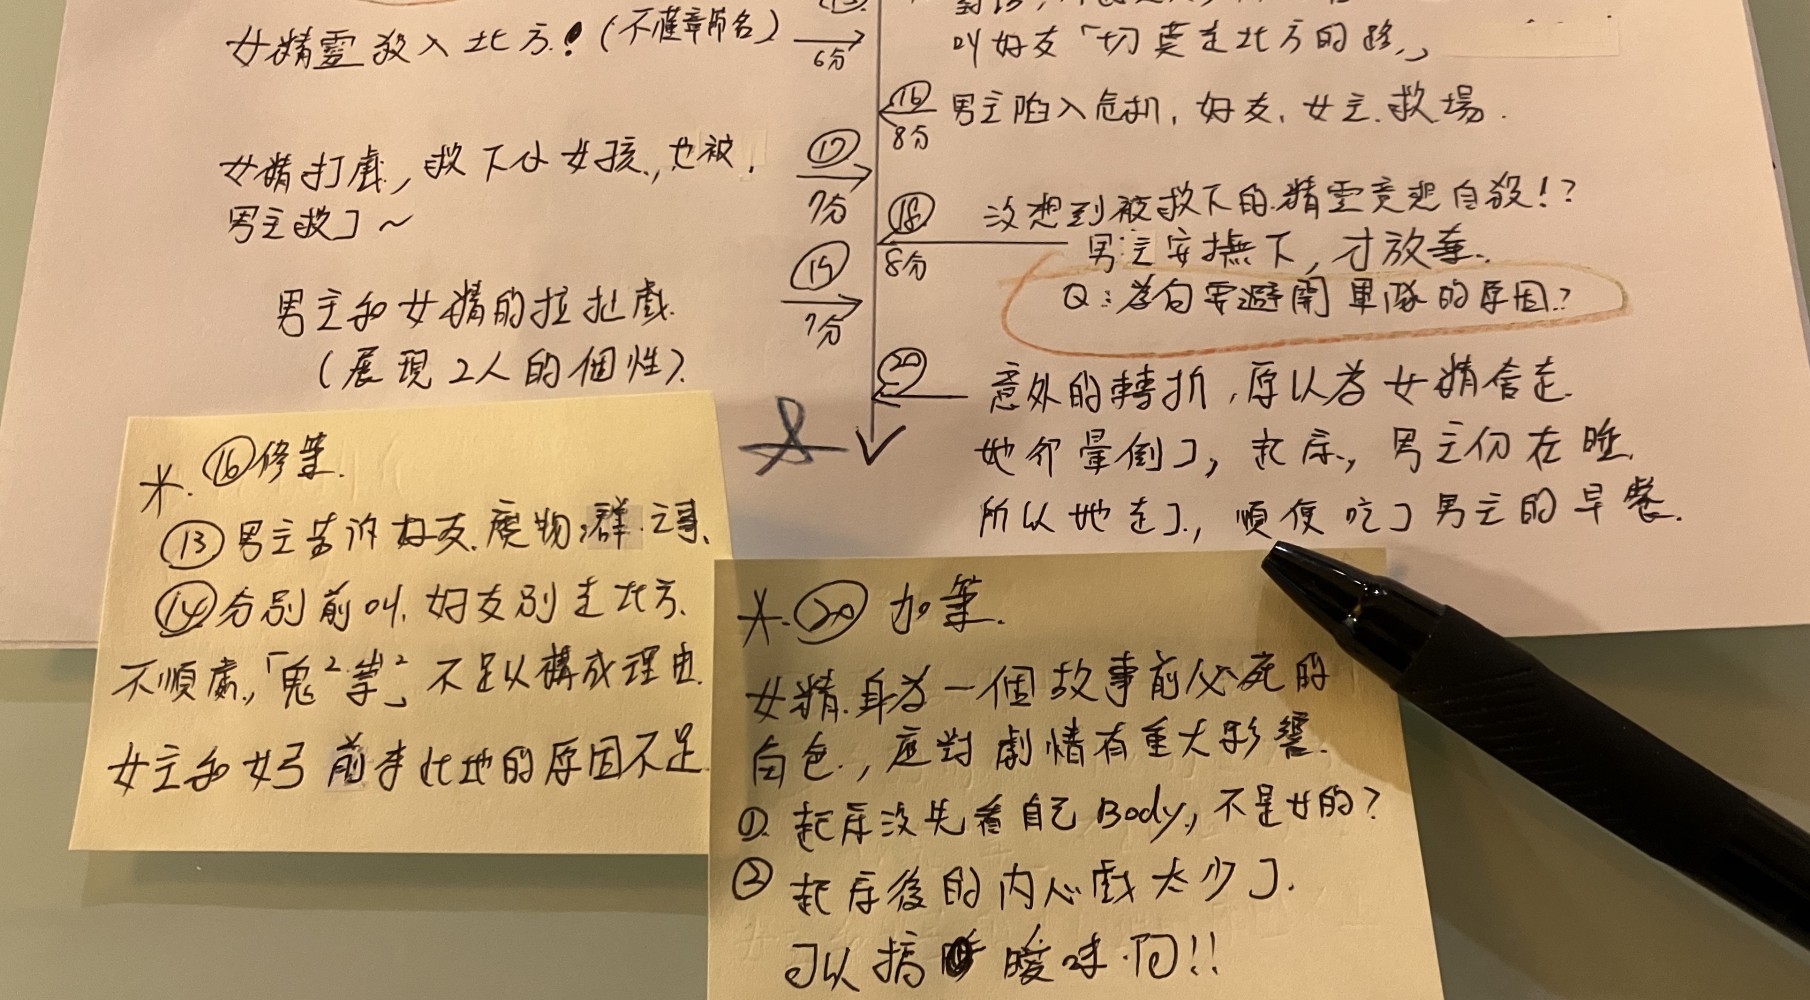 女精靈殺入北方!(不僅章節名)
6分
女精打戲,救下小女孩,也被
男主救了~
⑰
7分
男主和女精的拉扯戲
(展現2人的個性)
⑲
7分
叫好友「切莫走北方的路」
⑯
8分
男主陷入危机,好友,女主救場.
⑱
8分
沒想到被救下的精靈竟想自殺!?
男主安撫下,才放棄.
Q:為何要避開軍隊的原因?
⑳
意外的轉折,原以為女精會走.
她卻暈倒了,起床,男主仍在睡.
所以她走了,順便吃了男主的早餐.
⑯修筆.
⑬男主告訴好友.魔物群之事.
⑭分別前叫,好友別走北方.
不順處,「鬼²祟²」不足以構成理由.
女主和女弓前來此地的原因不足.
⑳加筆.
女精身為一個故事前必死的
角色,應對劇情有重大影響.
①起床沒先看自己Body,不是女的?
②起床後的內心戲太少了.
可以搞曖昧啊!!